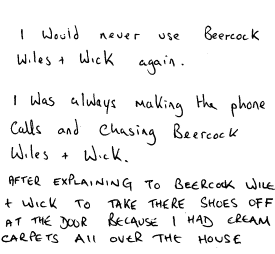 I would never use Beercock
Wiles + Wick again.
I was always making the phone
calls and chasing Beercock
Wiles + Wick.
AFTER EXPLAINING TO BEERCOCK WILE
+ WICK TO TAKE THERE SHOES OFF
AT THE DOOR BECAUSE I HAD CREAM
CARPETS All OVER THE HOUSE